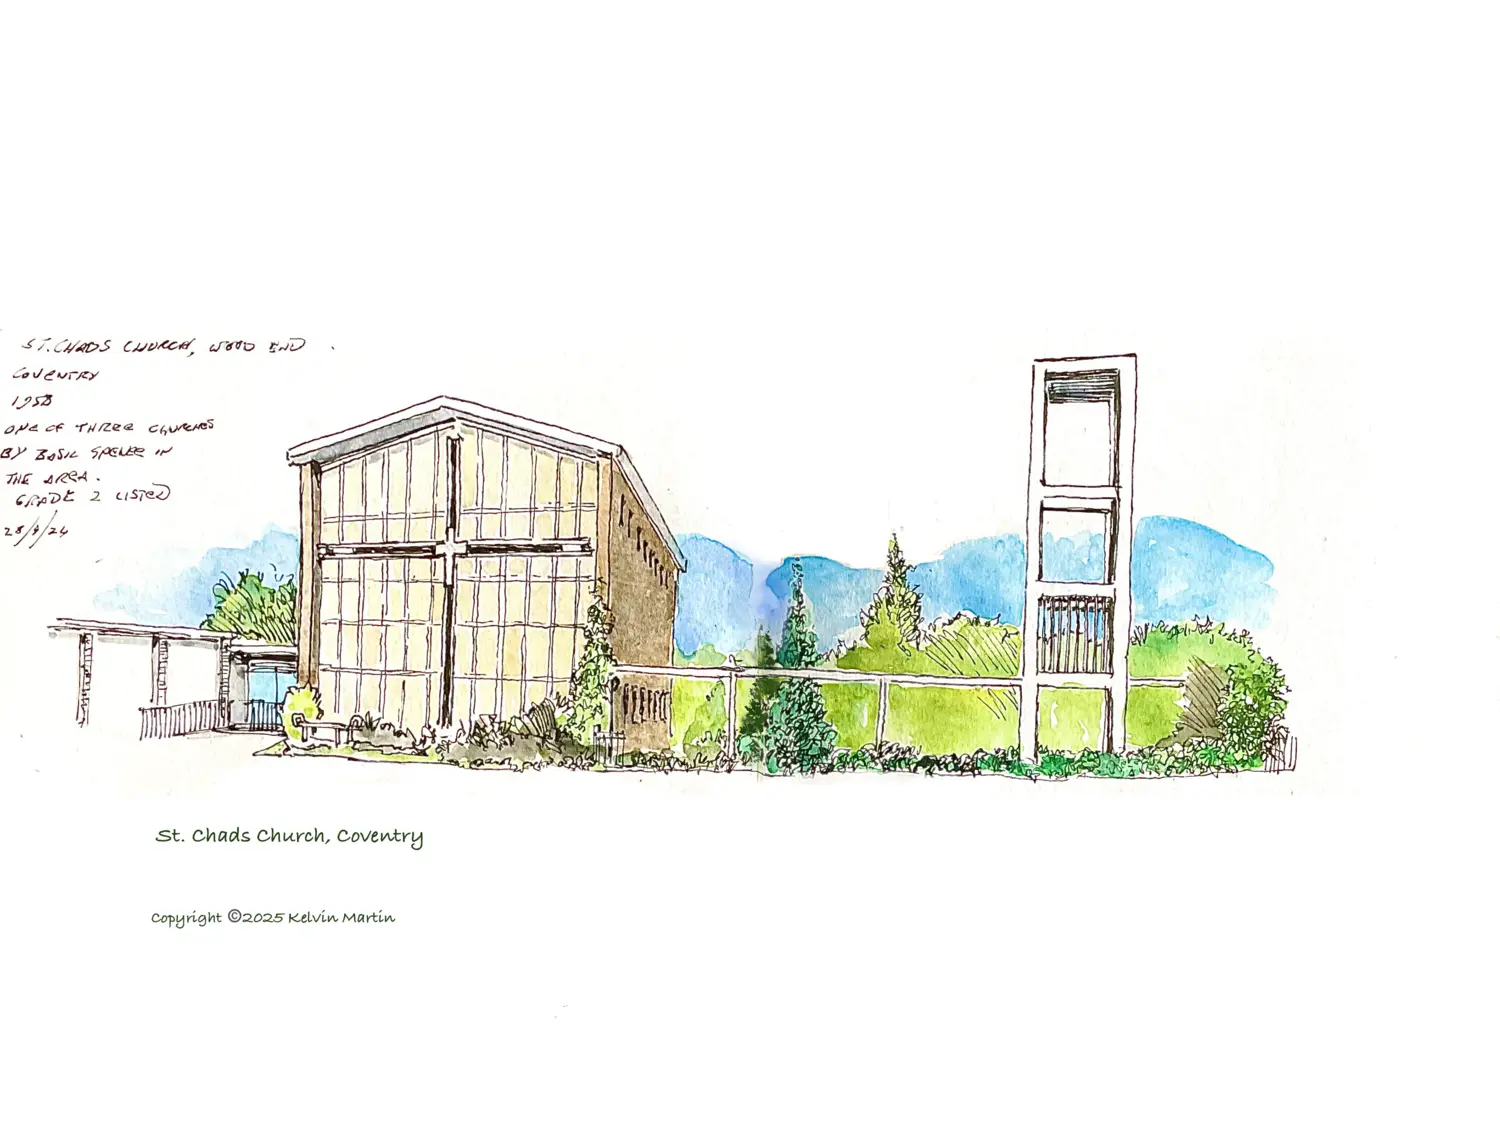 ST. CHADS CHURCH, WOOD END.
COVENTRY
1958
ONE OF THREE CHURCHES
BY BASIL SPENCE IN
THE AREA.
GRADE 2 LISTED
28/9/24
St. Chads Church, Coventry
Copyright ©2025 Kelvin Martin